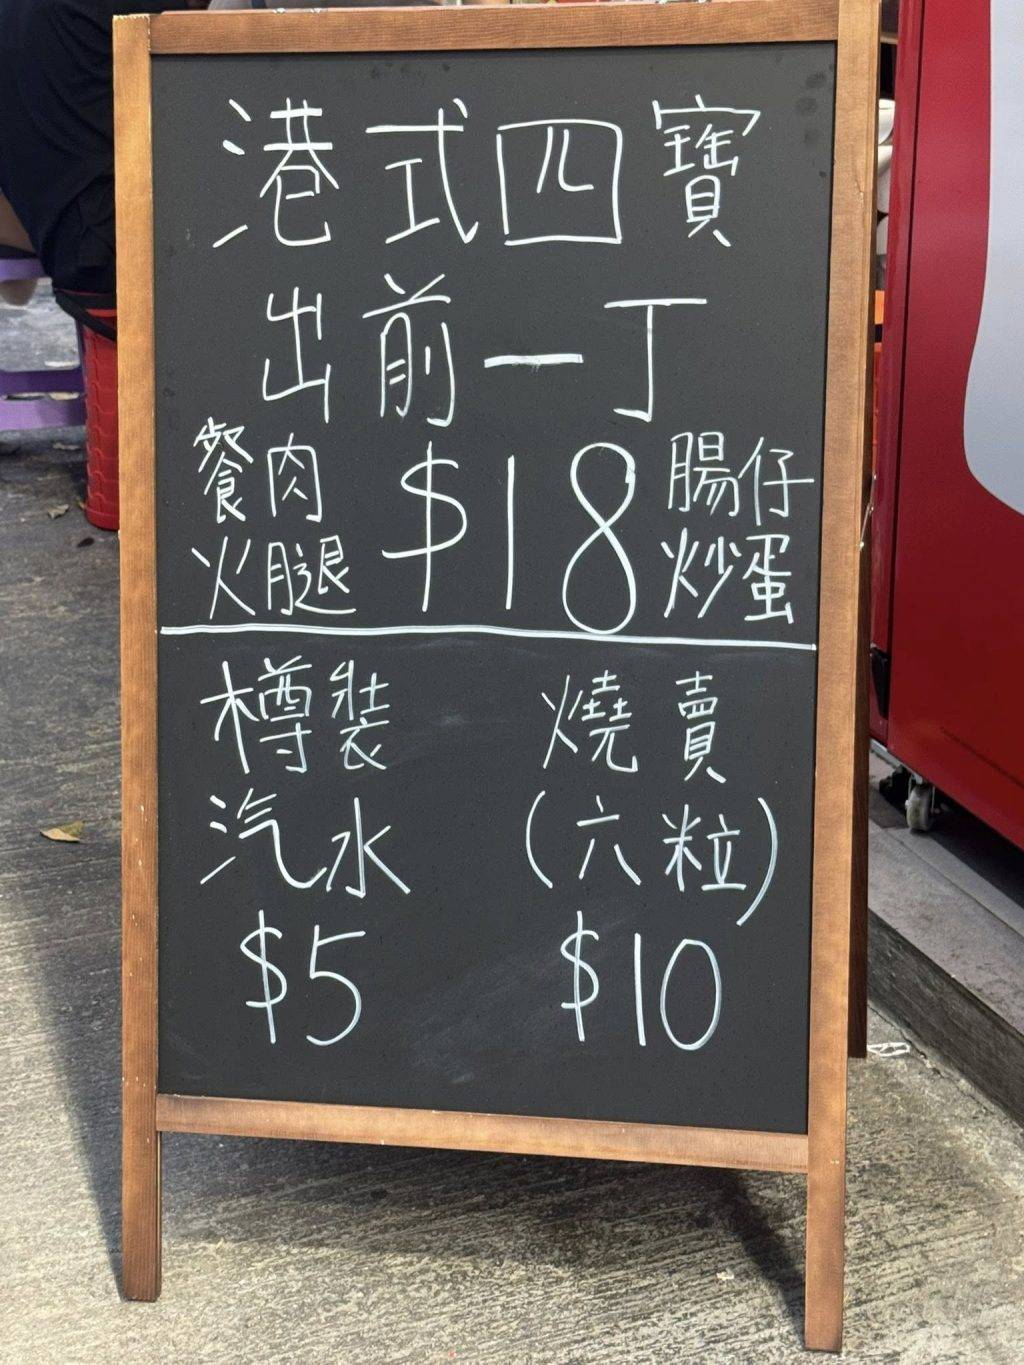 港式四寶
出前一丁
餐肉 $18 腸仔
火腿 炒蛋
樽裝 燒賣
汽水 (六粒)
$5 $10